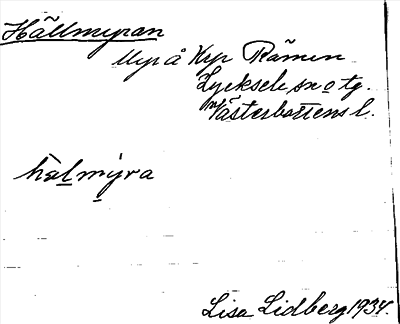 Hällmyran
Myr å Krp Råmen
Lycksele sn o tg.
Västerbottens l.
hàlmýra
Lisa Lidberg 1934.